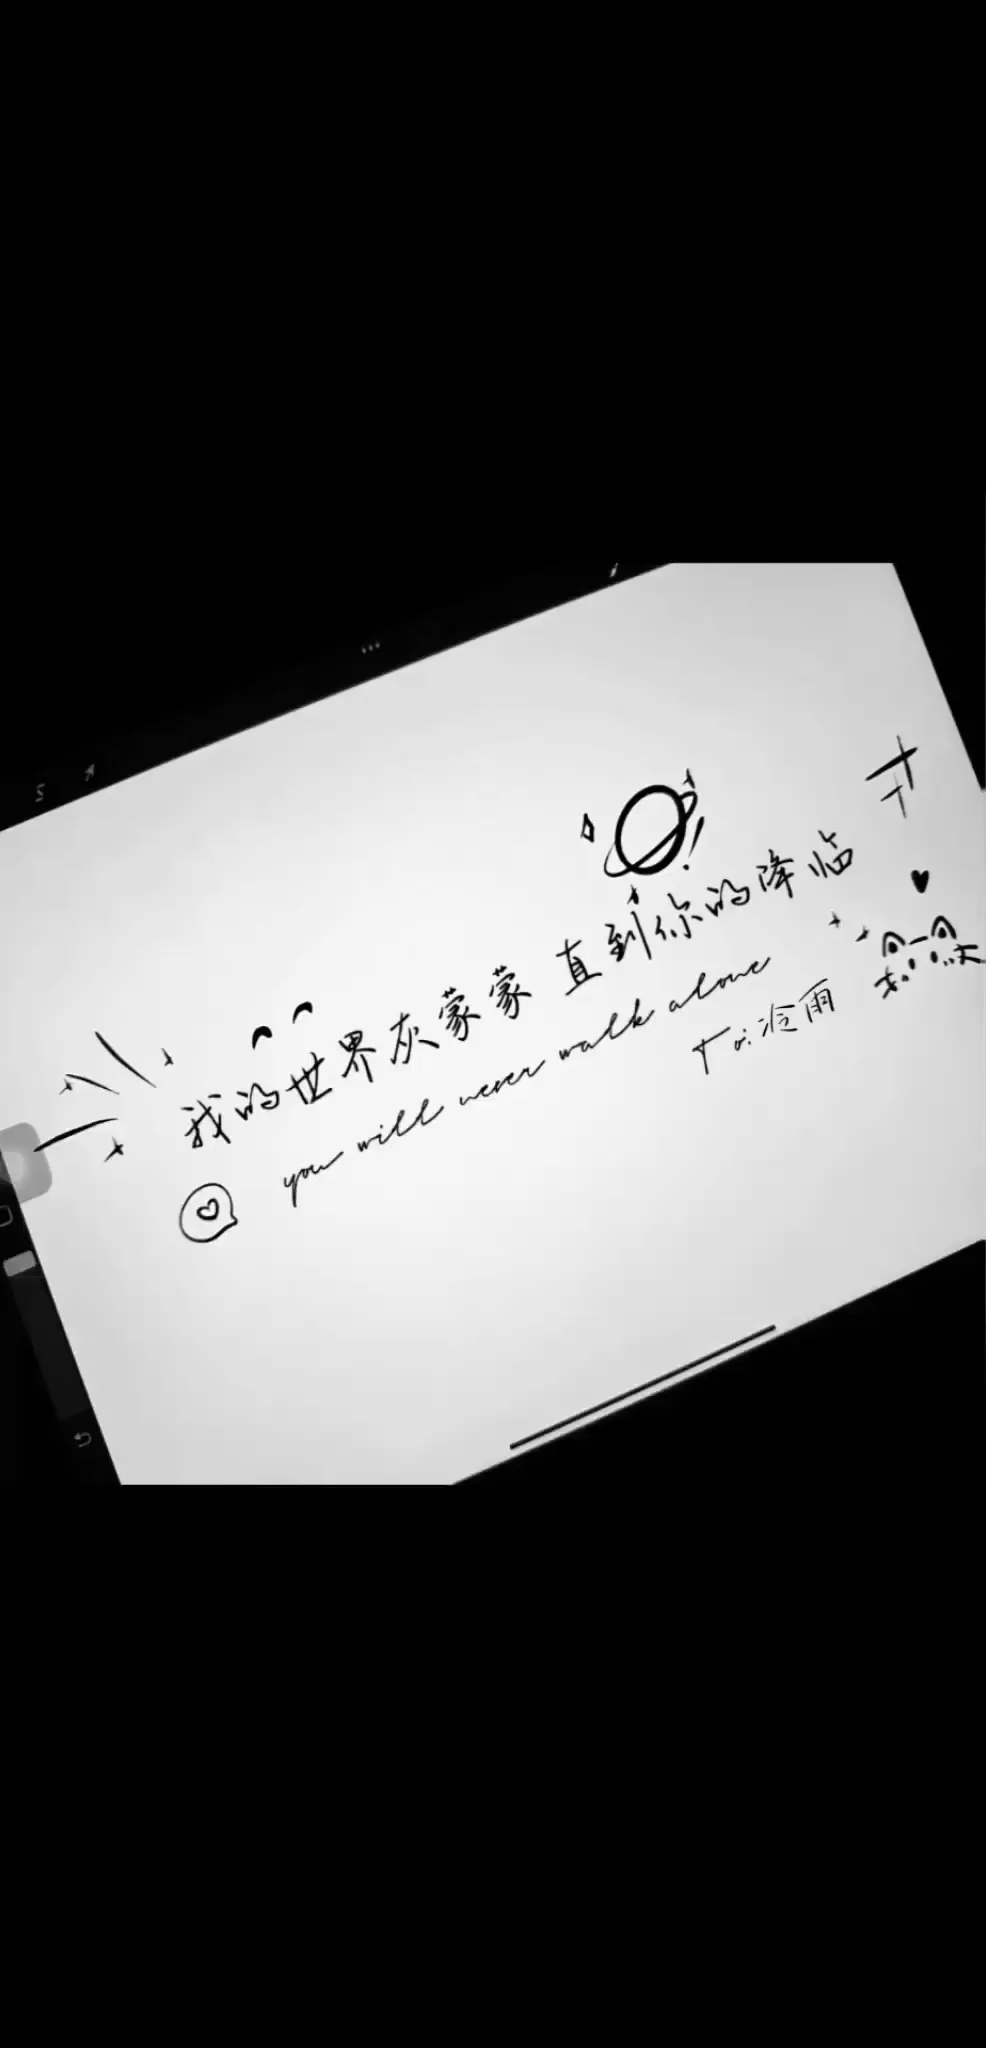 我的世界灰蒙蒙 直到你的降临
you will never walk alone
To:冷雨